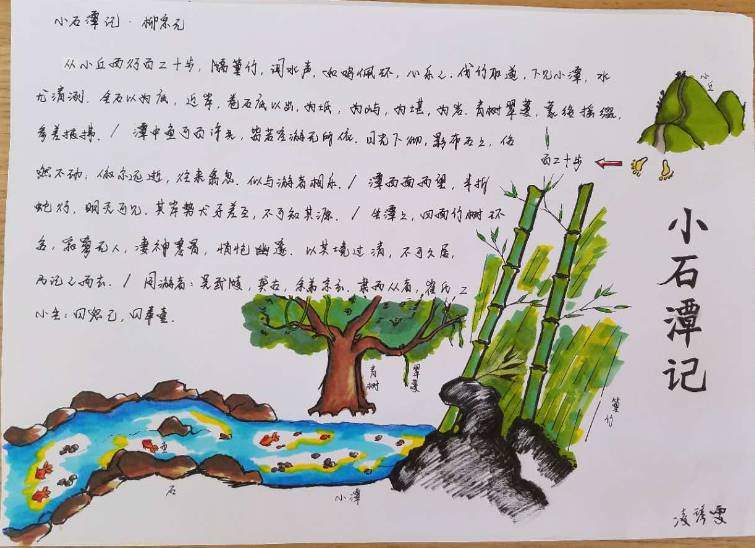 小石潭记·柳宗元
从小丘西行百二十步，隔篁竹，闻水声，如鸣佩环，心乐之。伐竹取道，下见小潭，水
尤清冽。全石以为底，近岸，卷石底以出，为坻，为屿，为嵁，为岩。青树翠蔓，蒙络摇缀，
参差披拂。/ 潭中鱼可百许头，皆若空游无所依。日光下彻，影布石上，佁
然不动；俶尔远逝，往来翕忽。似与游者相乐。/ 潭西南而望，斗折
蛇行，明灭可见。其岸势犬牙差互，不可知其源。/ 坐潭上，四面竹树环
合，寂寥无人，凄神寒骨，悄怆幽邃。以其境过清，不可久居，
乃记之而去。/ 同游者：吴武陵，龚古，余弟宗玄。隶而从者，崔氏二
小生：曰恕己，曰奉壹。
小丘
百二十步
小石潭记
青树
翠蔓
篁竹
鱼
石
小潭
凌琇雯